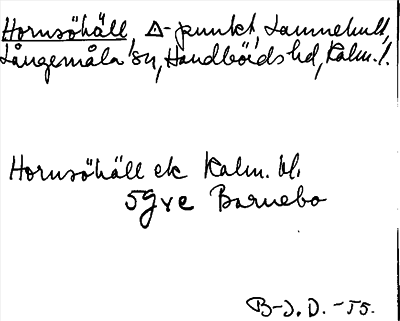 Hornsöhäll, △-punkt, Lamnehult,
Långemåla sn, Handbörds hd, Kalm. l.
Hornsöhäll ek Kalm. bl.
5 g v e Barnebo
B-J. D. -55.